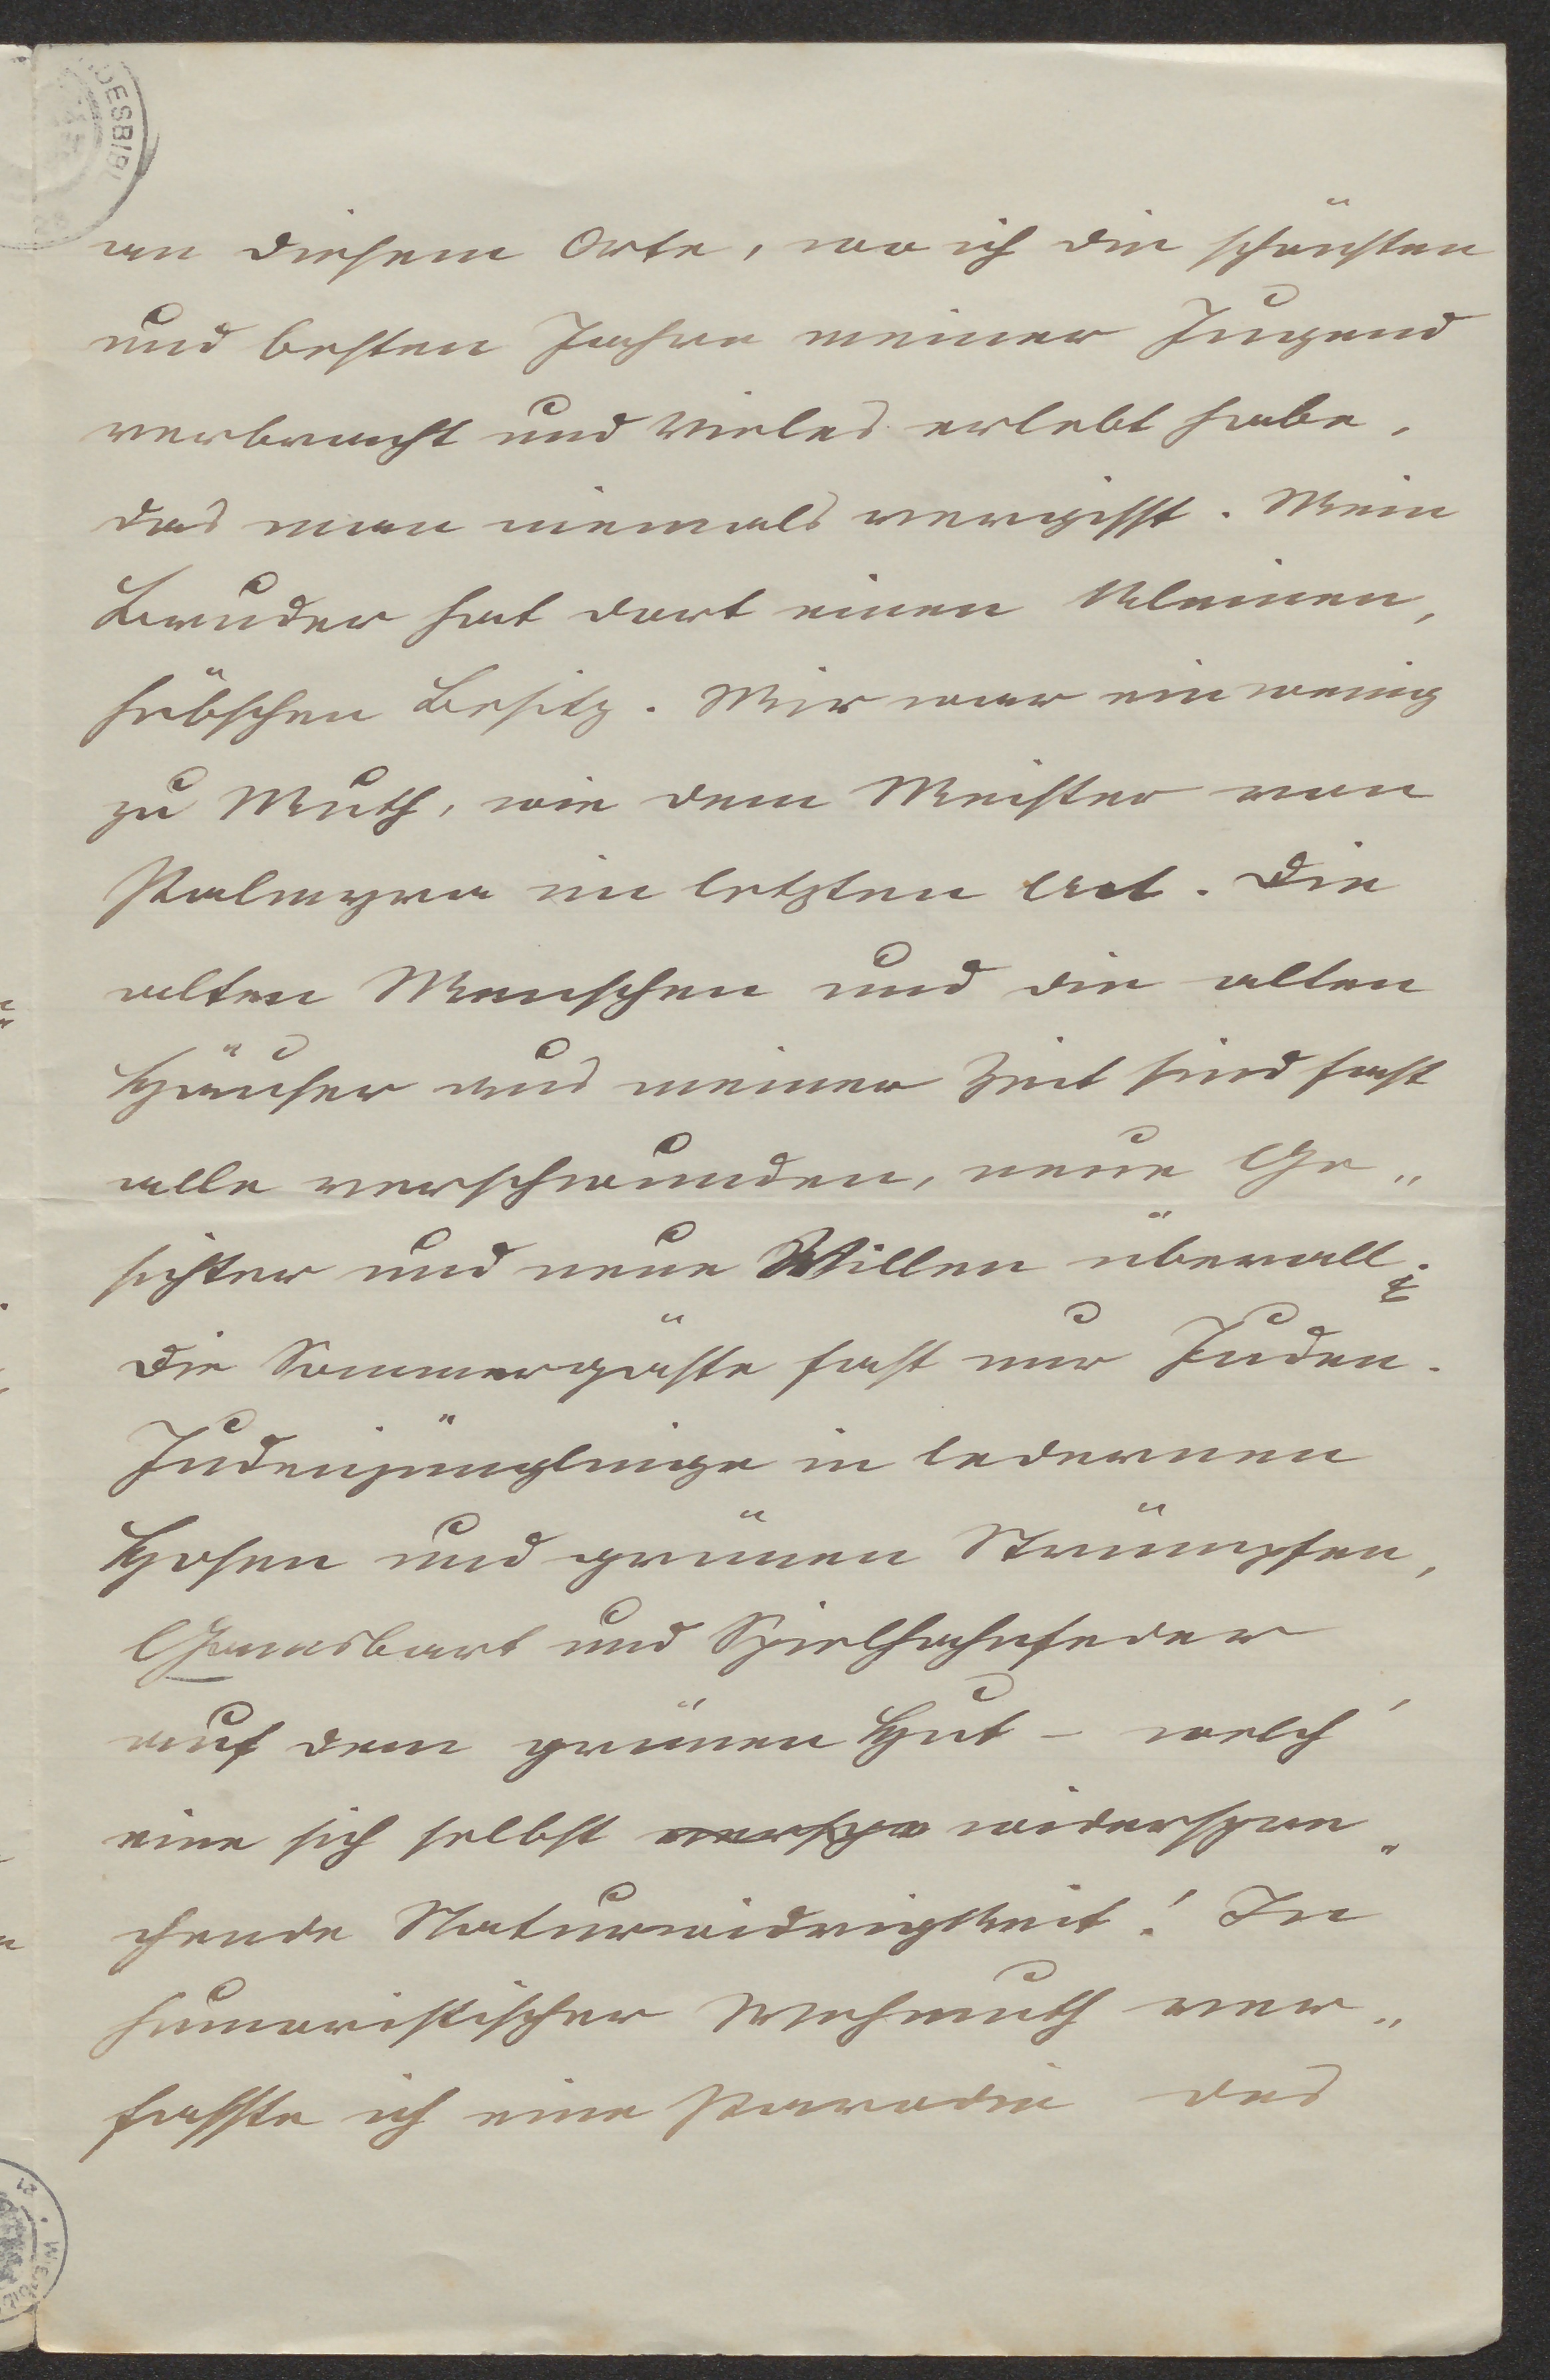 DESBIBL
an diesem Orte, wo ich die schönsten
und besten Jahre meiner Jugend
verbracht und Vieles erlebt habe,
das man niemals vergisst. Mein
Bruder hat dort einen kleinen,
hübschen Besitz. Mir war ein wenig
zu Muth, wie dem Meister von
Palmyra im letzten Act. Die
alten Menschen und die alten
Häuser aus meiner Zeit sind fast
alle verschwunden, neue Ge„
sichter und neue Villen überall;
die Sommergäste fast nur Juden.
Judenjünglinge in ledernen
Hosen und grünen Strümpfen,
Gamsbart und Spielhahnfeder
auf dem grünen Hut – welch'
eine sich selbst widerspre„
chende Naturwidrigkeit! In
humoristischer Wehmuth ver„
fasste ich eine Parodie des